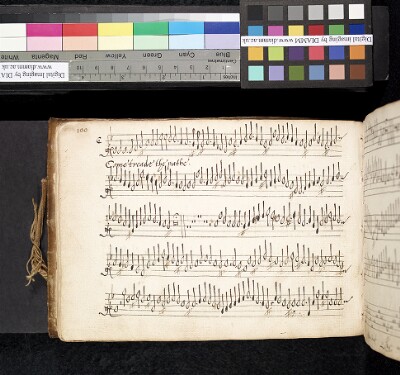 Blue Cyan Green Yellow Red Magenta White
Centimetres
Inches
Digital Imaging by DIAMM
www.diamm.ac.uk
Digital Imaging by DIAMM
www.diamm.ac.uk
100
Come treade the pathe.